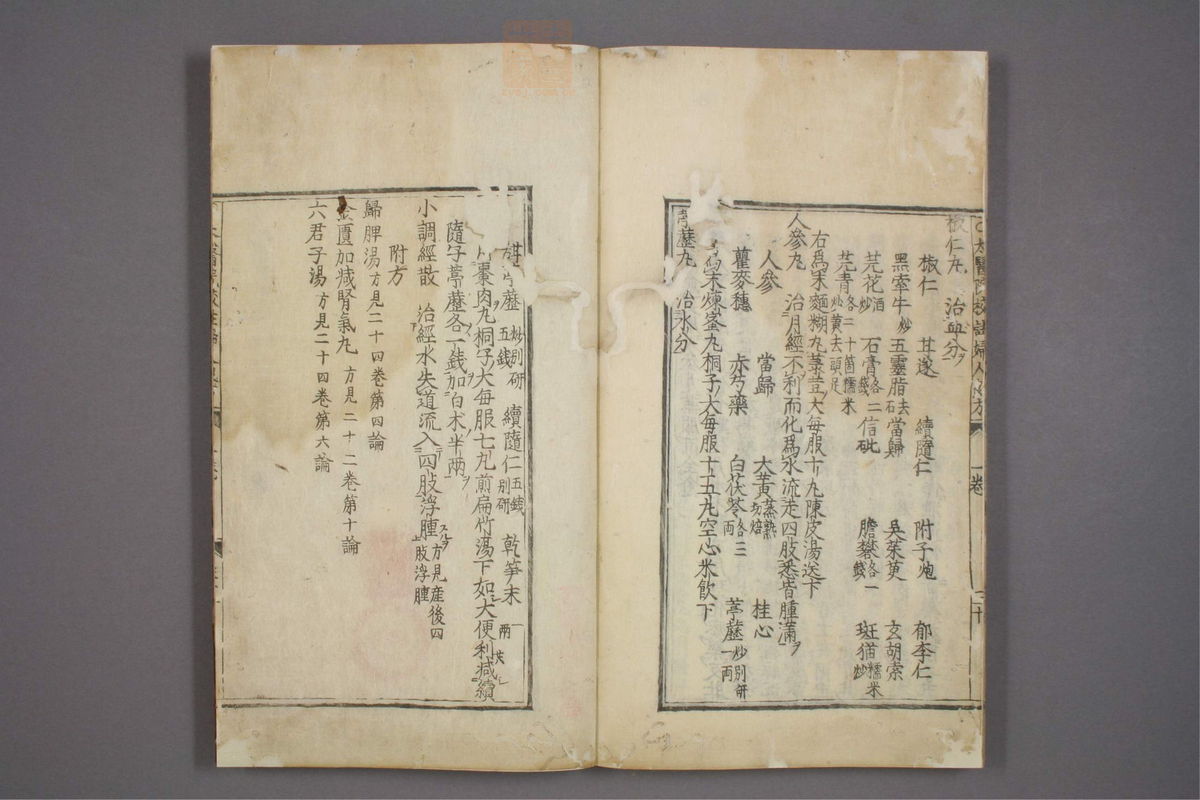 太醫院校註婦人良方 一卷 二十
椒仁丸 治血分
椒仁 甘遂 續隨仁 附子炮 郁李仁
黑牽牛炒 五靈脂去石 當歸 吳茱萸 玄胡索
芫花酒炒 石膏各二錢 信砒 膽礬各一錢 斑猫糯米炒
芫青各三十箇糯米炒黃去頭足
右為末麵糊丸菉豆大每服十丸陳皮湯送下
人參丸 治月經不利而化為水流走四肢悉皆腫滿
人參 當歸 大黃蒸熟切焙 桂心
瞿麥穗 赤芍藥 白茯苓各三兩 葶藶炒別研一兩
為末煉蜜丸桐子大每服十五丸空心米飲下
葶藶丸 治水分
葶藶炒別研五錢 續隨仁五錢別研 乾笋末一兩
棗肉丸桐子大每服七丸煎扁竹湯下如大便利減續
隨子葶藶各一錢加白朮半兩
小調經散 治經水失道流入四肢浮腫方見產後四肢浮腫
附方
歸脾湯方見二十四卷第四論
金匱加減腎氣丸方見二十二卷第十論
六君子湯方見二十四卷第六論